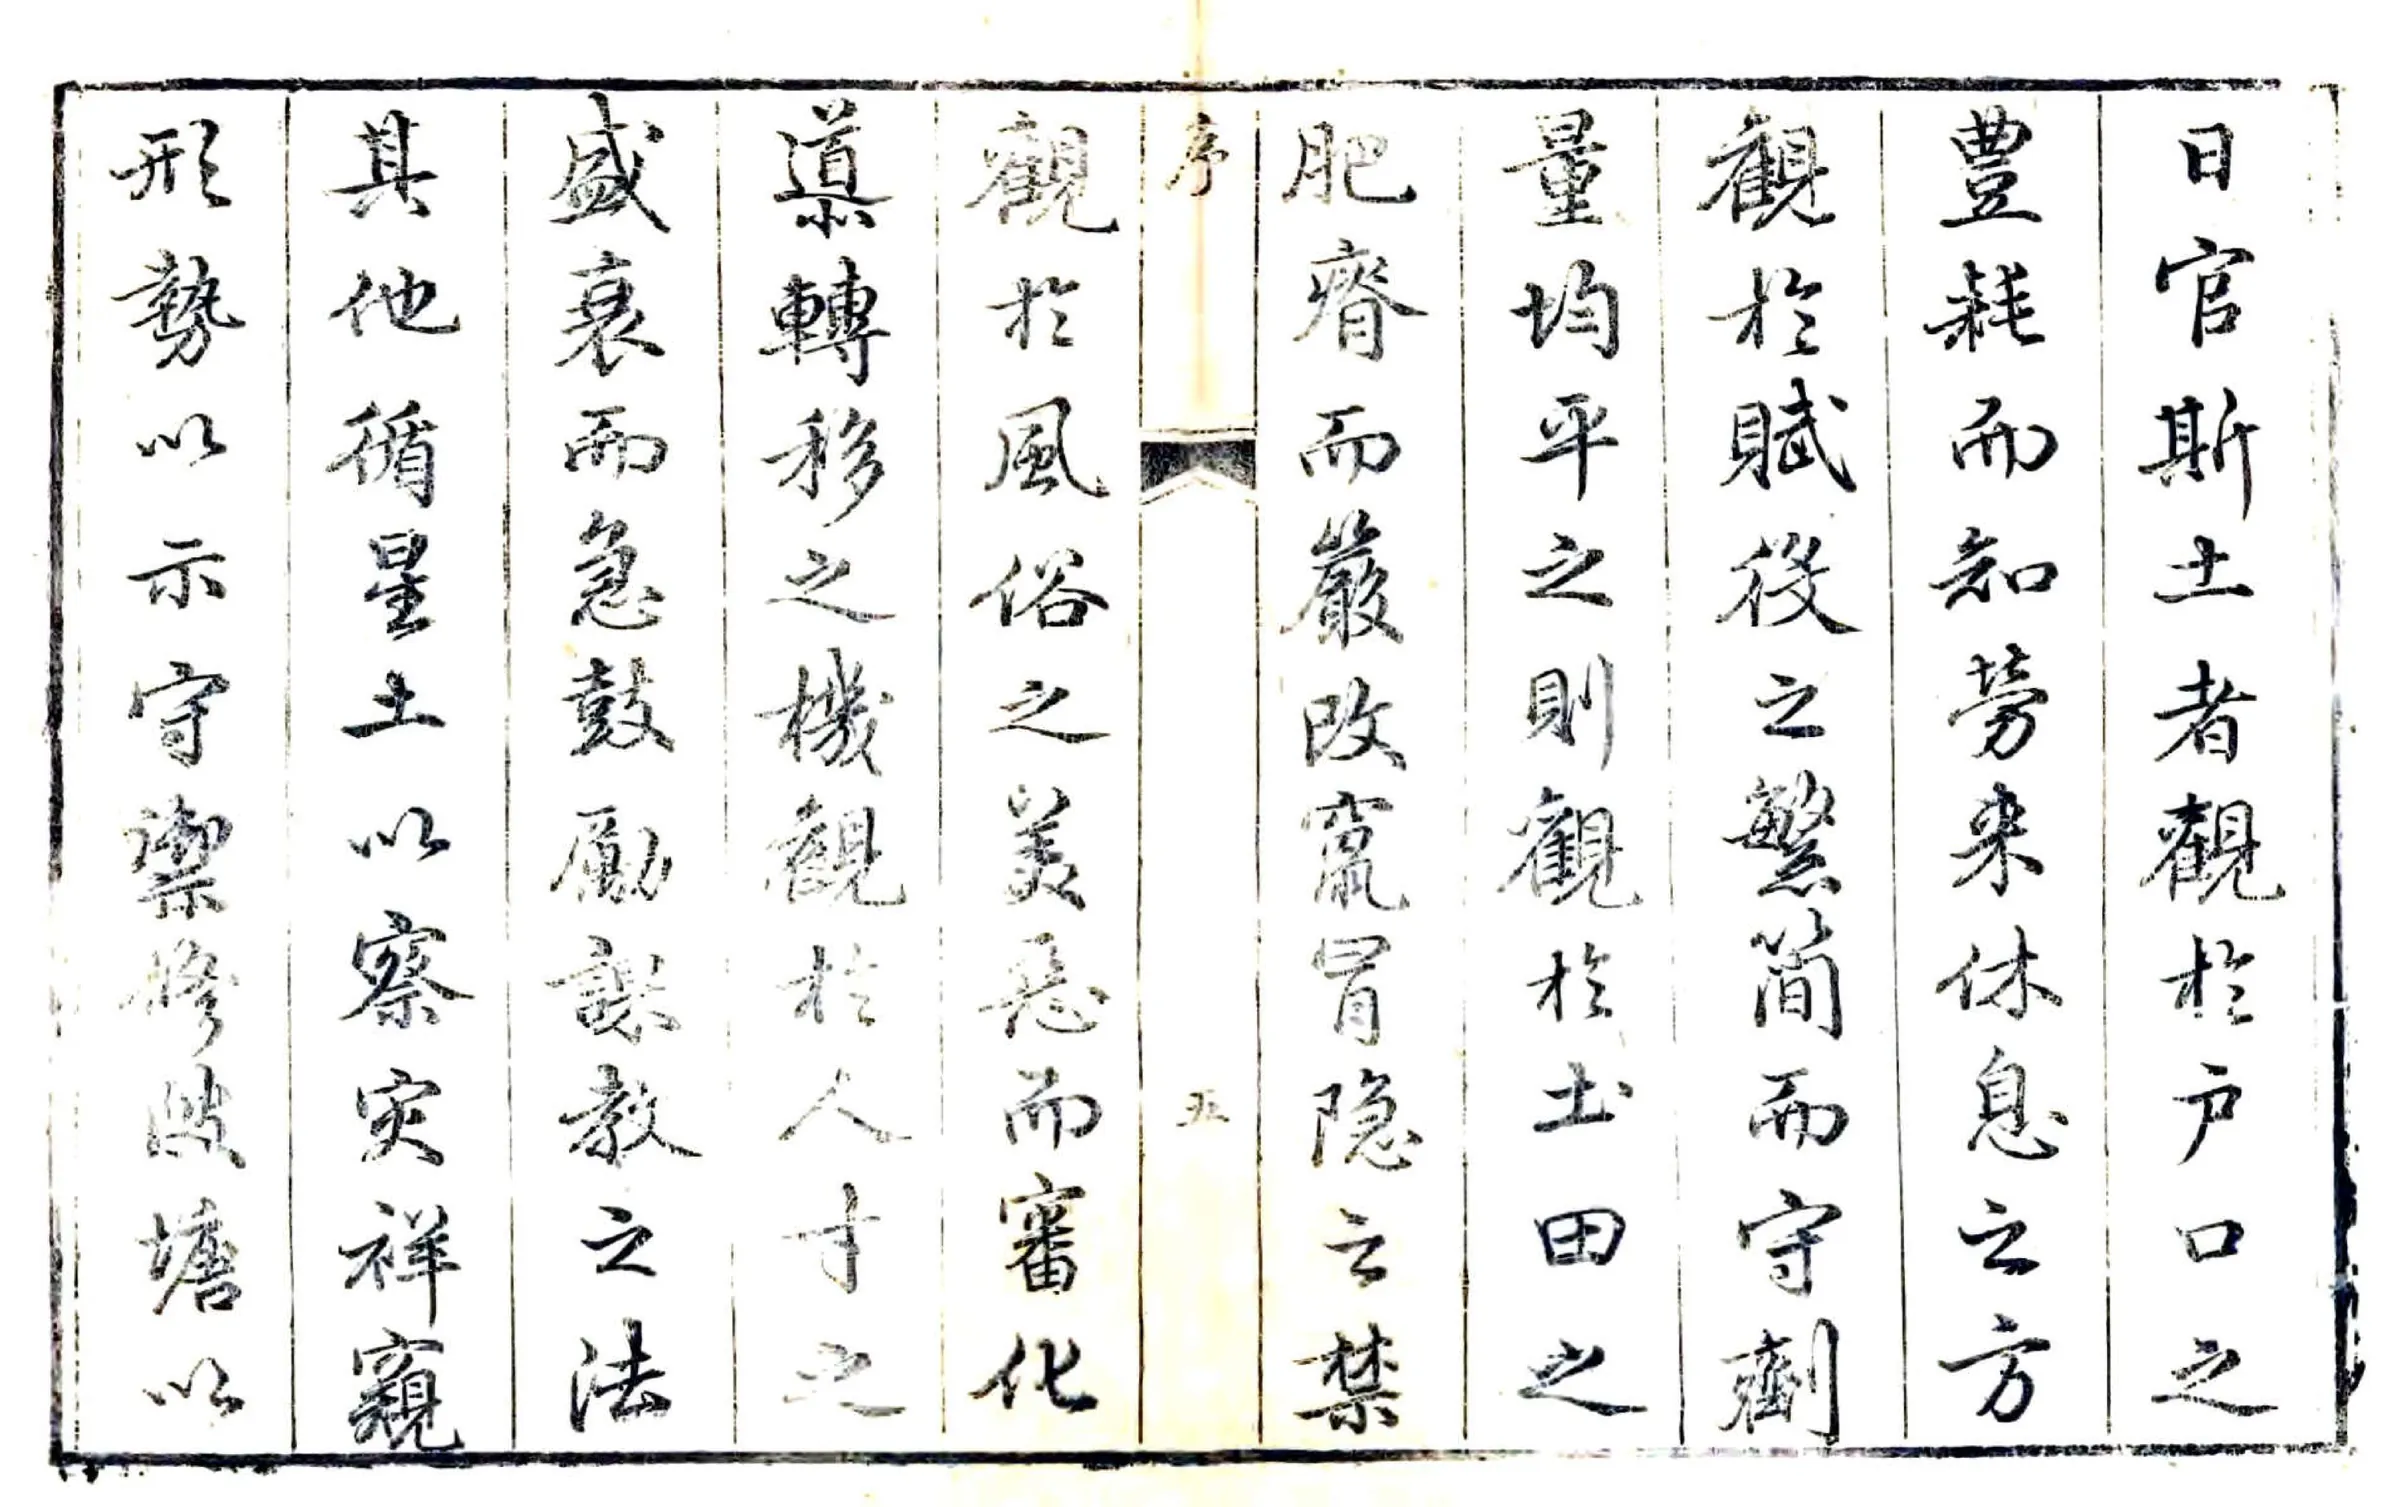 日官斯土者觀於户口之
豊耗而知勞来休息之方
觀於賦役之繁簡而守劑
量均平之則觀於土田之
肥瘠而嚴改竄冒隐之禁
序
五
觀於風俗之美惡而審化
導轉移之機觀於人才之
盛衰而急鼓勵課教之法
其他循星土以察灾祥窺
形勢以示守禦修陂塘以